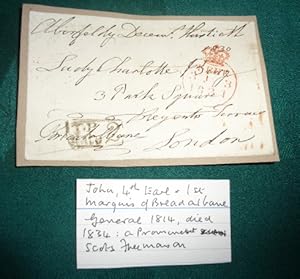 Aberfeldy Decemr. thirtieth
Lady Charlotte
3 Park Square
Regents
London
John, 4th Earl + 1st
Marquis of Breadalbane
General 1814, died
1834: a Prominent
Scots Freemason